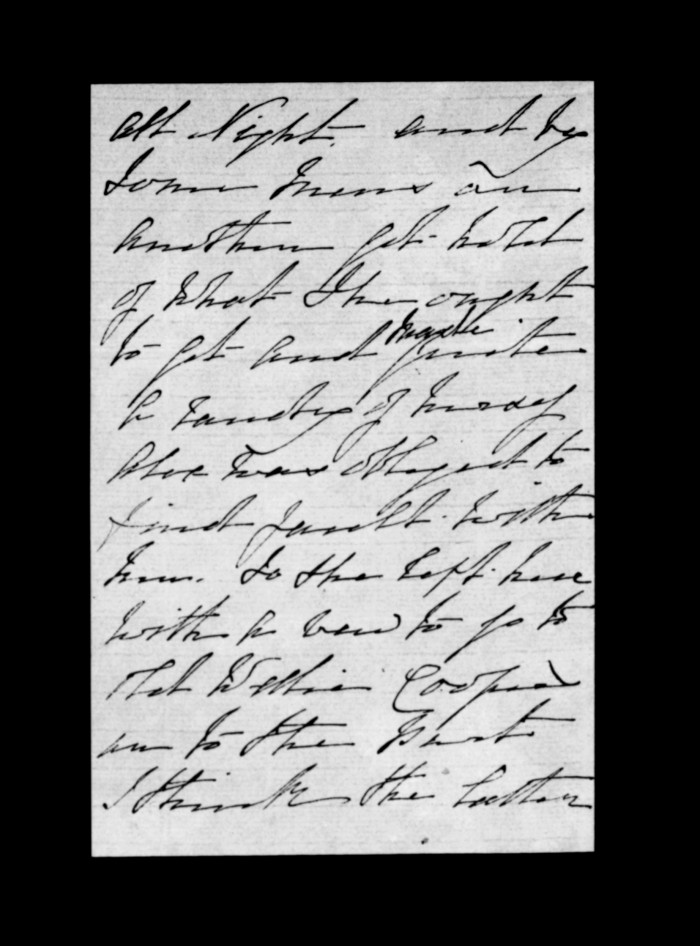 all Night. and by
some means or
another get hold
of what She ought
to get and made quite
a of herself
Alec was obliged to
find fault with
her. So she left here
with a view to go to
old Willie Coopers
or to the Hunt
I think the latter